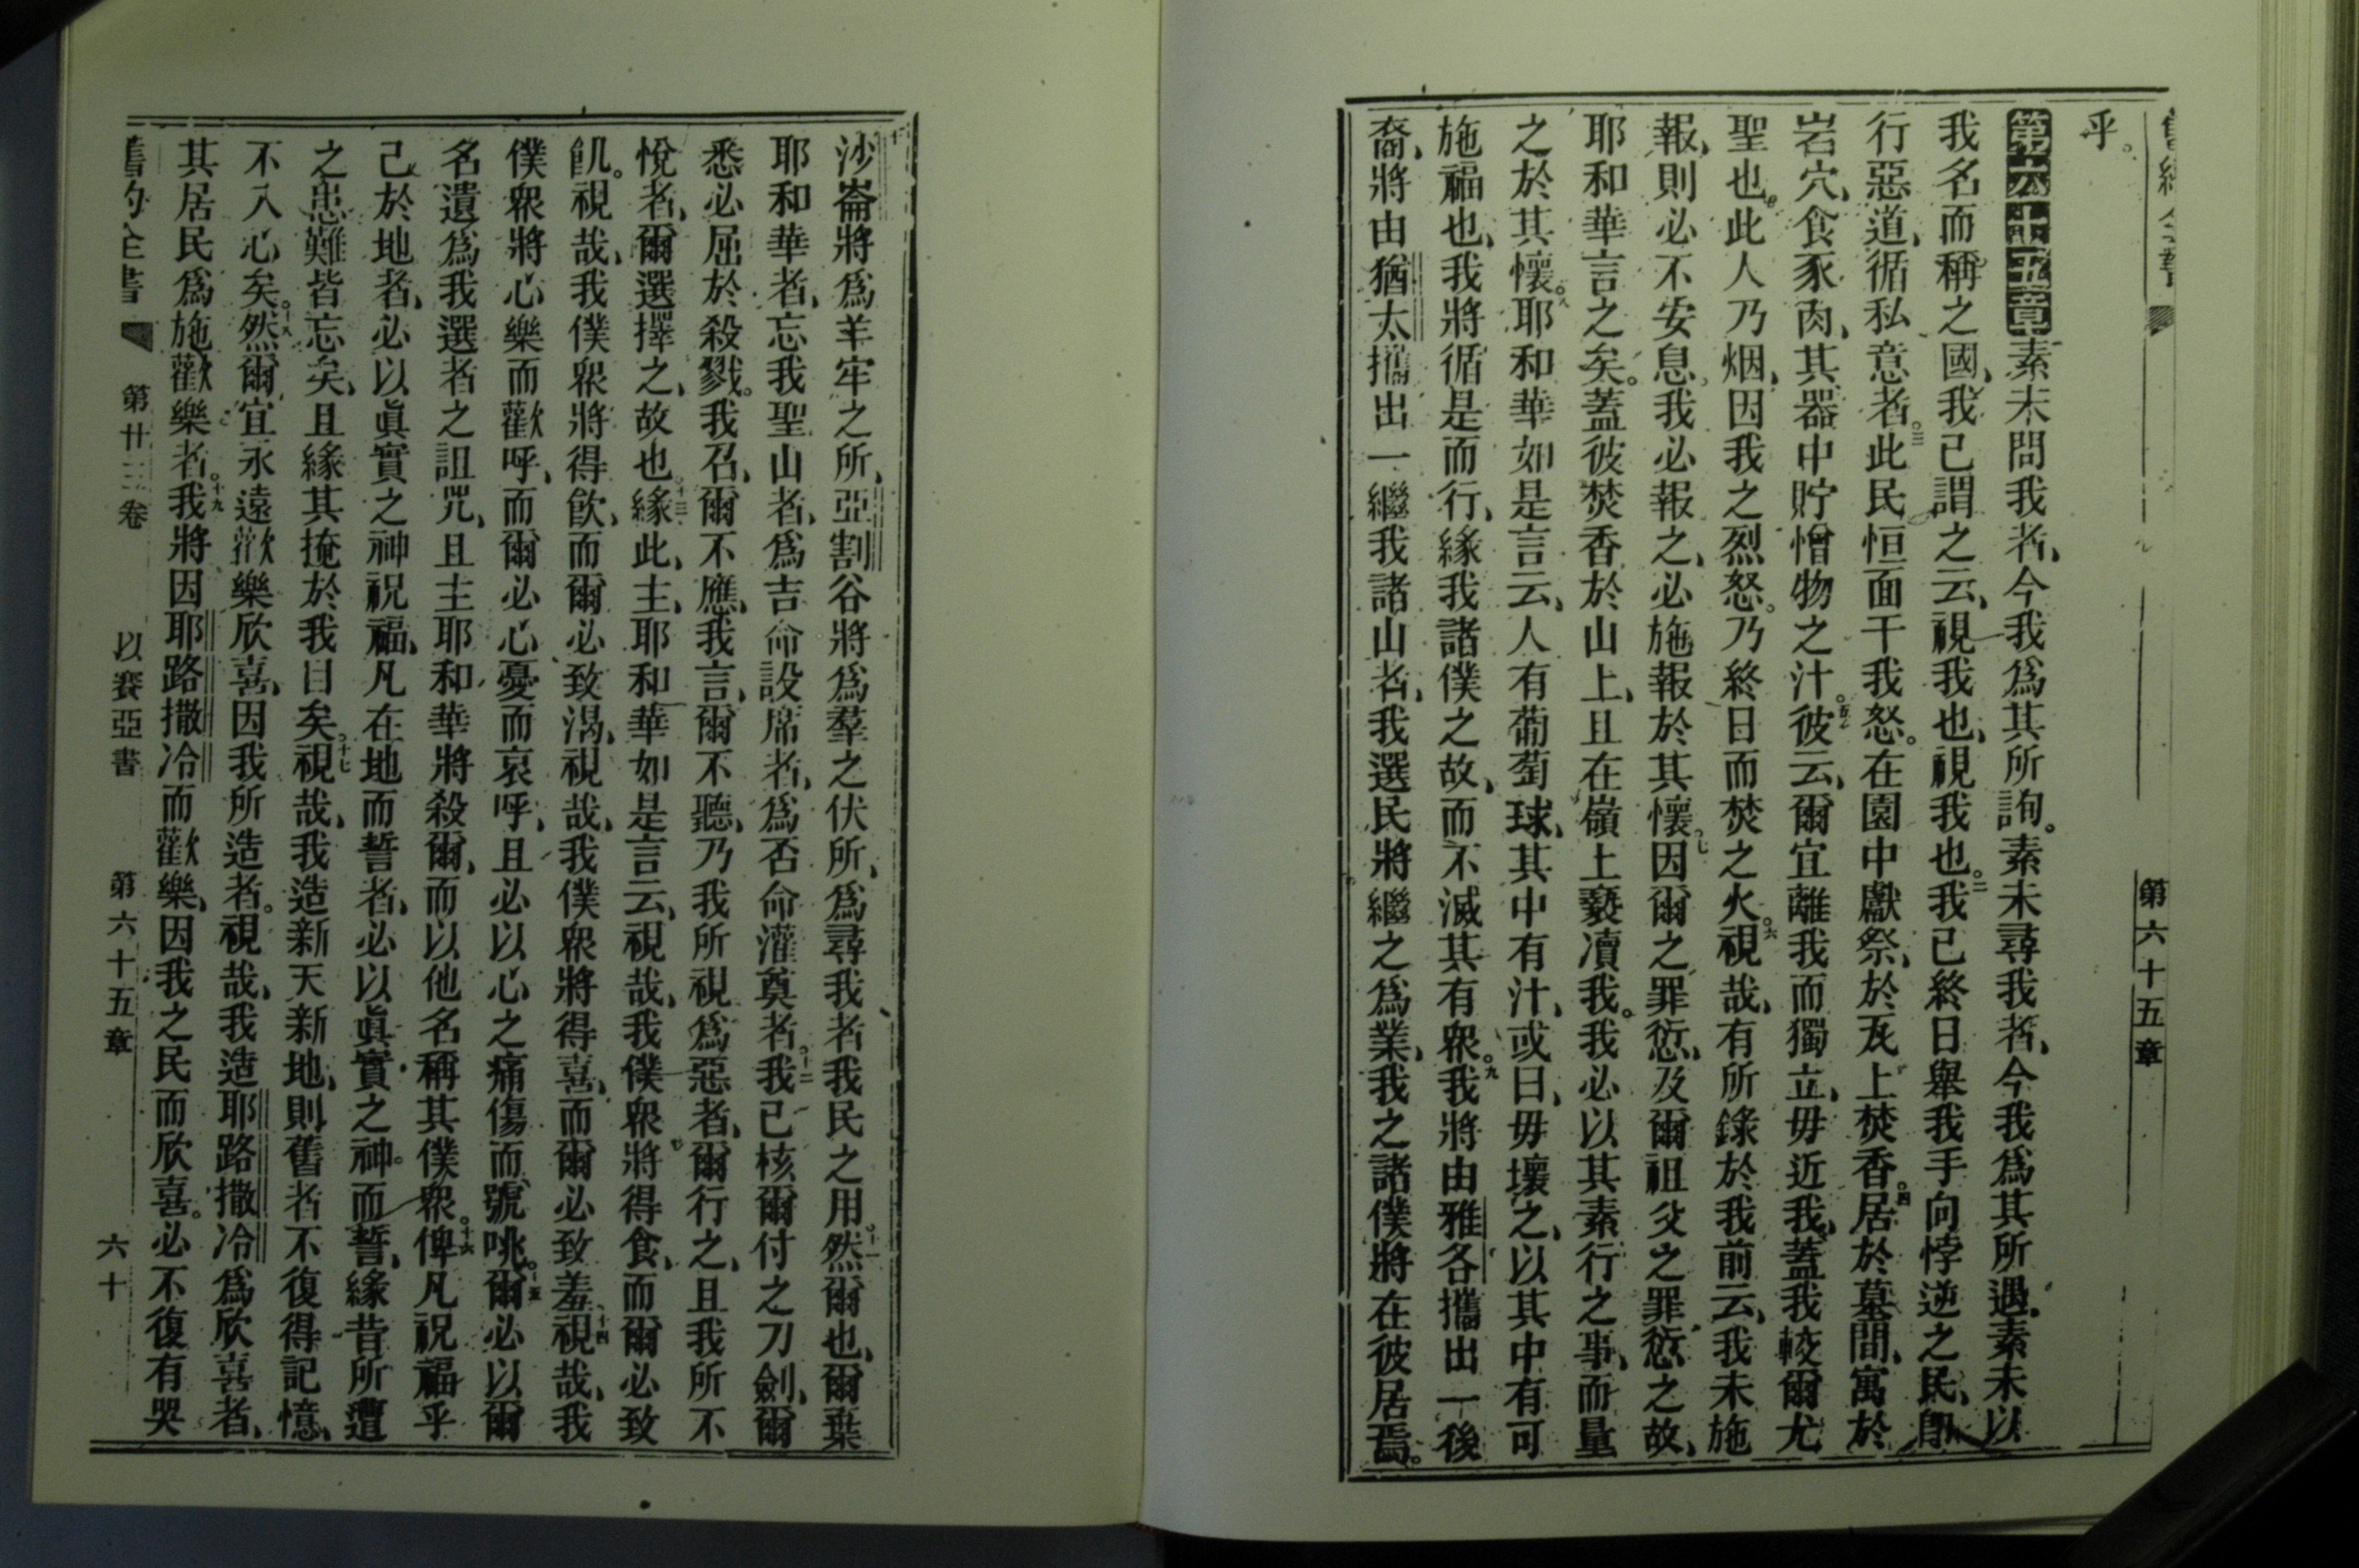 乎。
第六十五章素未問我者、今我爲其所詢。素未尋我者、今我爲其所遇。素未以
我名而稱之國、我己謂之云、視我也、視我也。二我已終日舉我手向悖逆之民、卽
行惡道、循私意者。三此民恒面干我怒。在園中獻祭、於瓦上焚香。四居於墓間、寓於
岩穴、食豕肉、其器中貯憎物之汁。五彼云、爾宜離我而獨立、毋近我、蓋我較爾尤
聖也此人乃烟、因我之烈怒。乃終日而焚之火。六視哉、有所錄於我前云、我未施
報、則必不安息我必報之、必施報於其懷。七因爾之罪愆、及爾祖父之罪愆之故、
耶和華言之矣。蓋彼焚香於山上、且在嶺上褻瀆我。我必以其素行之事、而量
之於其懷。八耶和華如是言云、人有葡萄球、其中有汁、或曰、毋壞之、以其中有可
施福也、我將循是而行、緣我諸僕之故、而不滅其有衆。九我將由雅各攜出一後
裔、將由猶太攜出一繼我諸山者、我選民將繼之爲業、我之諸僕將在彼居焉。
舊約全書 第六十五章
十沙崙將爲羊牢之所、亞割谷將爲羣之伏所、爲尋我者我民之用。十一然爾也、爾棄
耶和華者、忘我聖山者、爲吉命設席者、爲否命灌奠者。十二我已核爾付之刀劍、爾
悉必屈於殺戮。我召、爾不應、我言、爾不聽、乃我所視爲惡者、爾行之、且我所不
悅者、爾選擇之、故也。十三緣此、主、耶和華如是言云、視哉、我僕衆將得食、而爾必致
飢。視哉、我僕衆將得飮、而爾必致渴、視哉、我僕衆將得喜、而爾必致羞、十四視哉、我
僕衆將心樂而歡呼、而爾必心憂而哀呼、且必以心之痛傷而號咷。十五爾必以爾
名遺爲我選者之詛咒、且主耶和華將殺爾、而以他名稱其僕衆。十六俾凡祝福乎
己於地者、必以眞實之神祝福、凡在地而誓者、必以眞實之神。而誓、緣昔所遭
之患難皆忘矣、且緣其掩於我目矣。十七視哉、我造新天新地、則舊者不復得記憶、
不入心矣。十八然爾、宜永遠歡樂欣喜、因我所造者。視哉、我造耶路撒冷爲欣喜者、
其居民爲施歡樂者。十九我將因耶路撒冷而歡樂、因我之民而欣喜。必不復有哭
舊約全書 第廿三卷 以賽亞書 第六十五章 六十